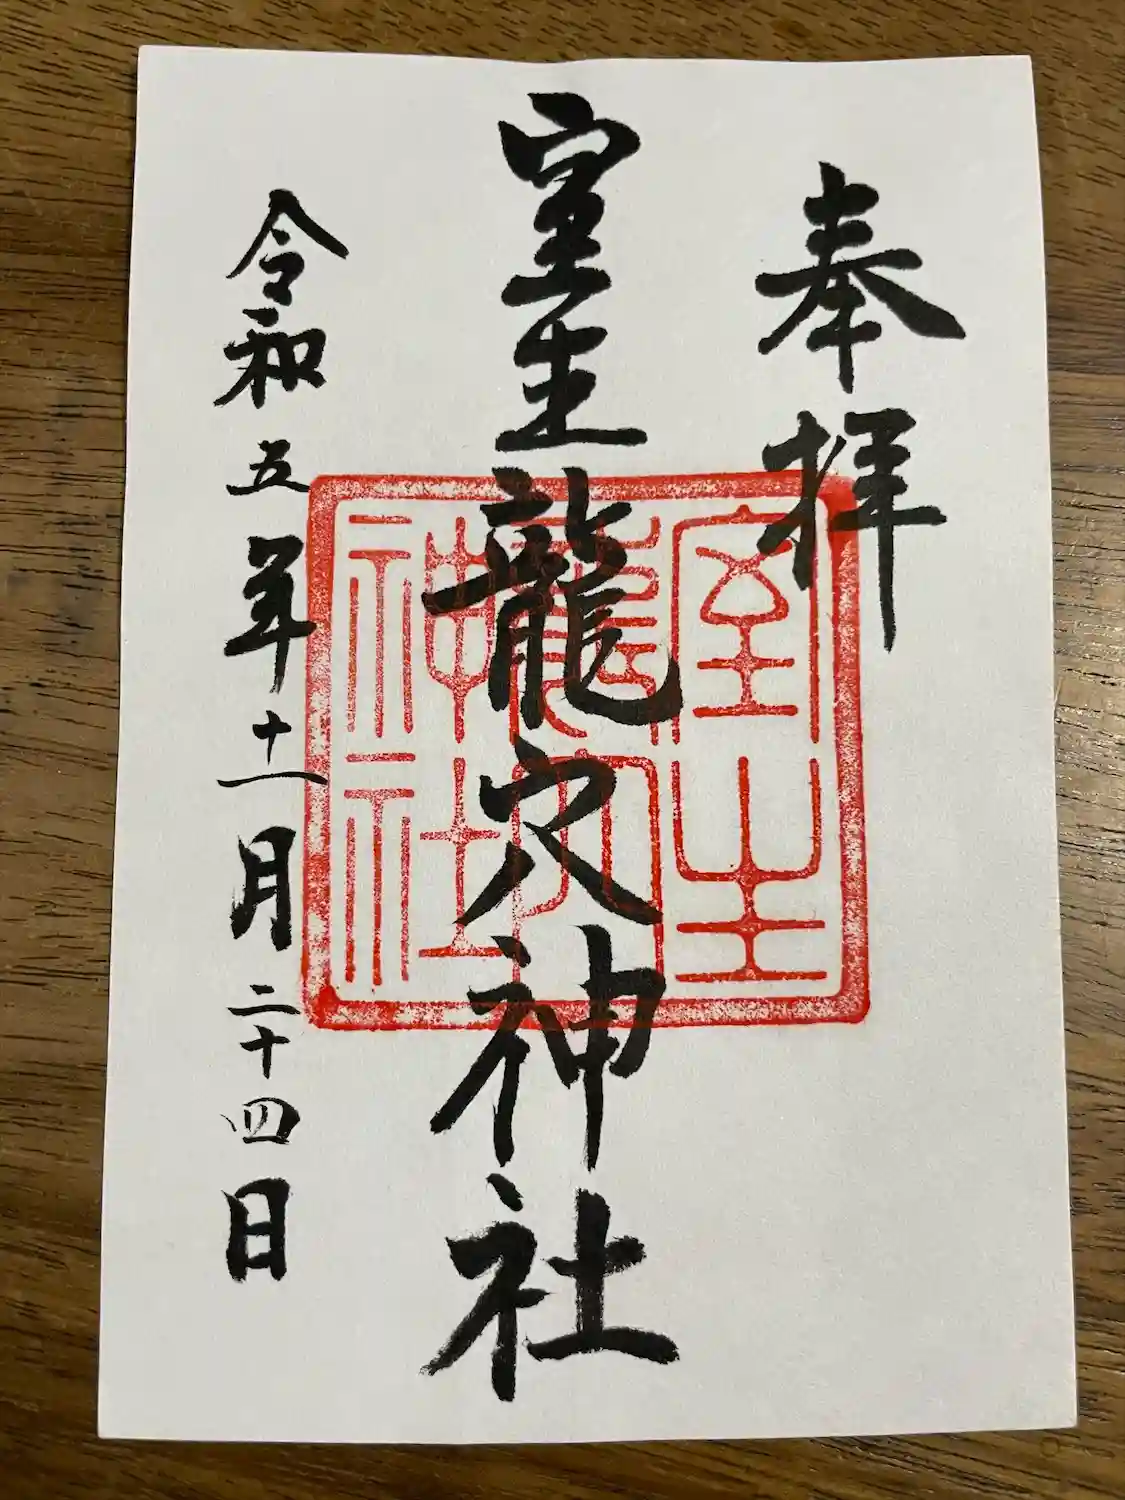 奉拝
室生龍穴神社
室生
龍穴
神社
令和五年十一月二十四日